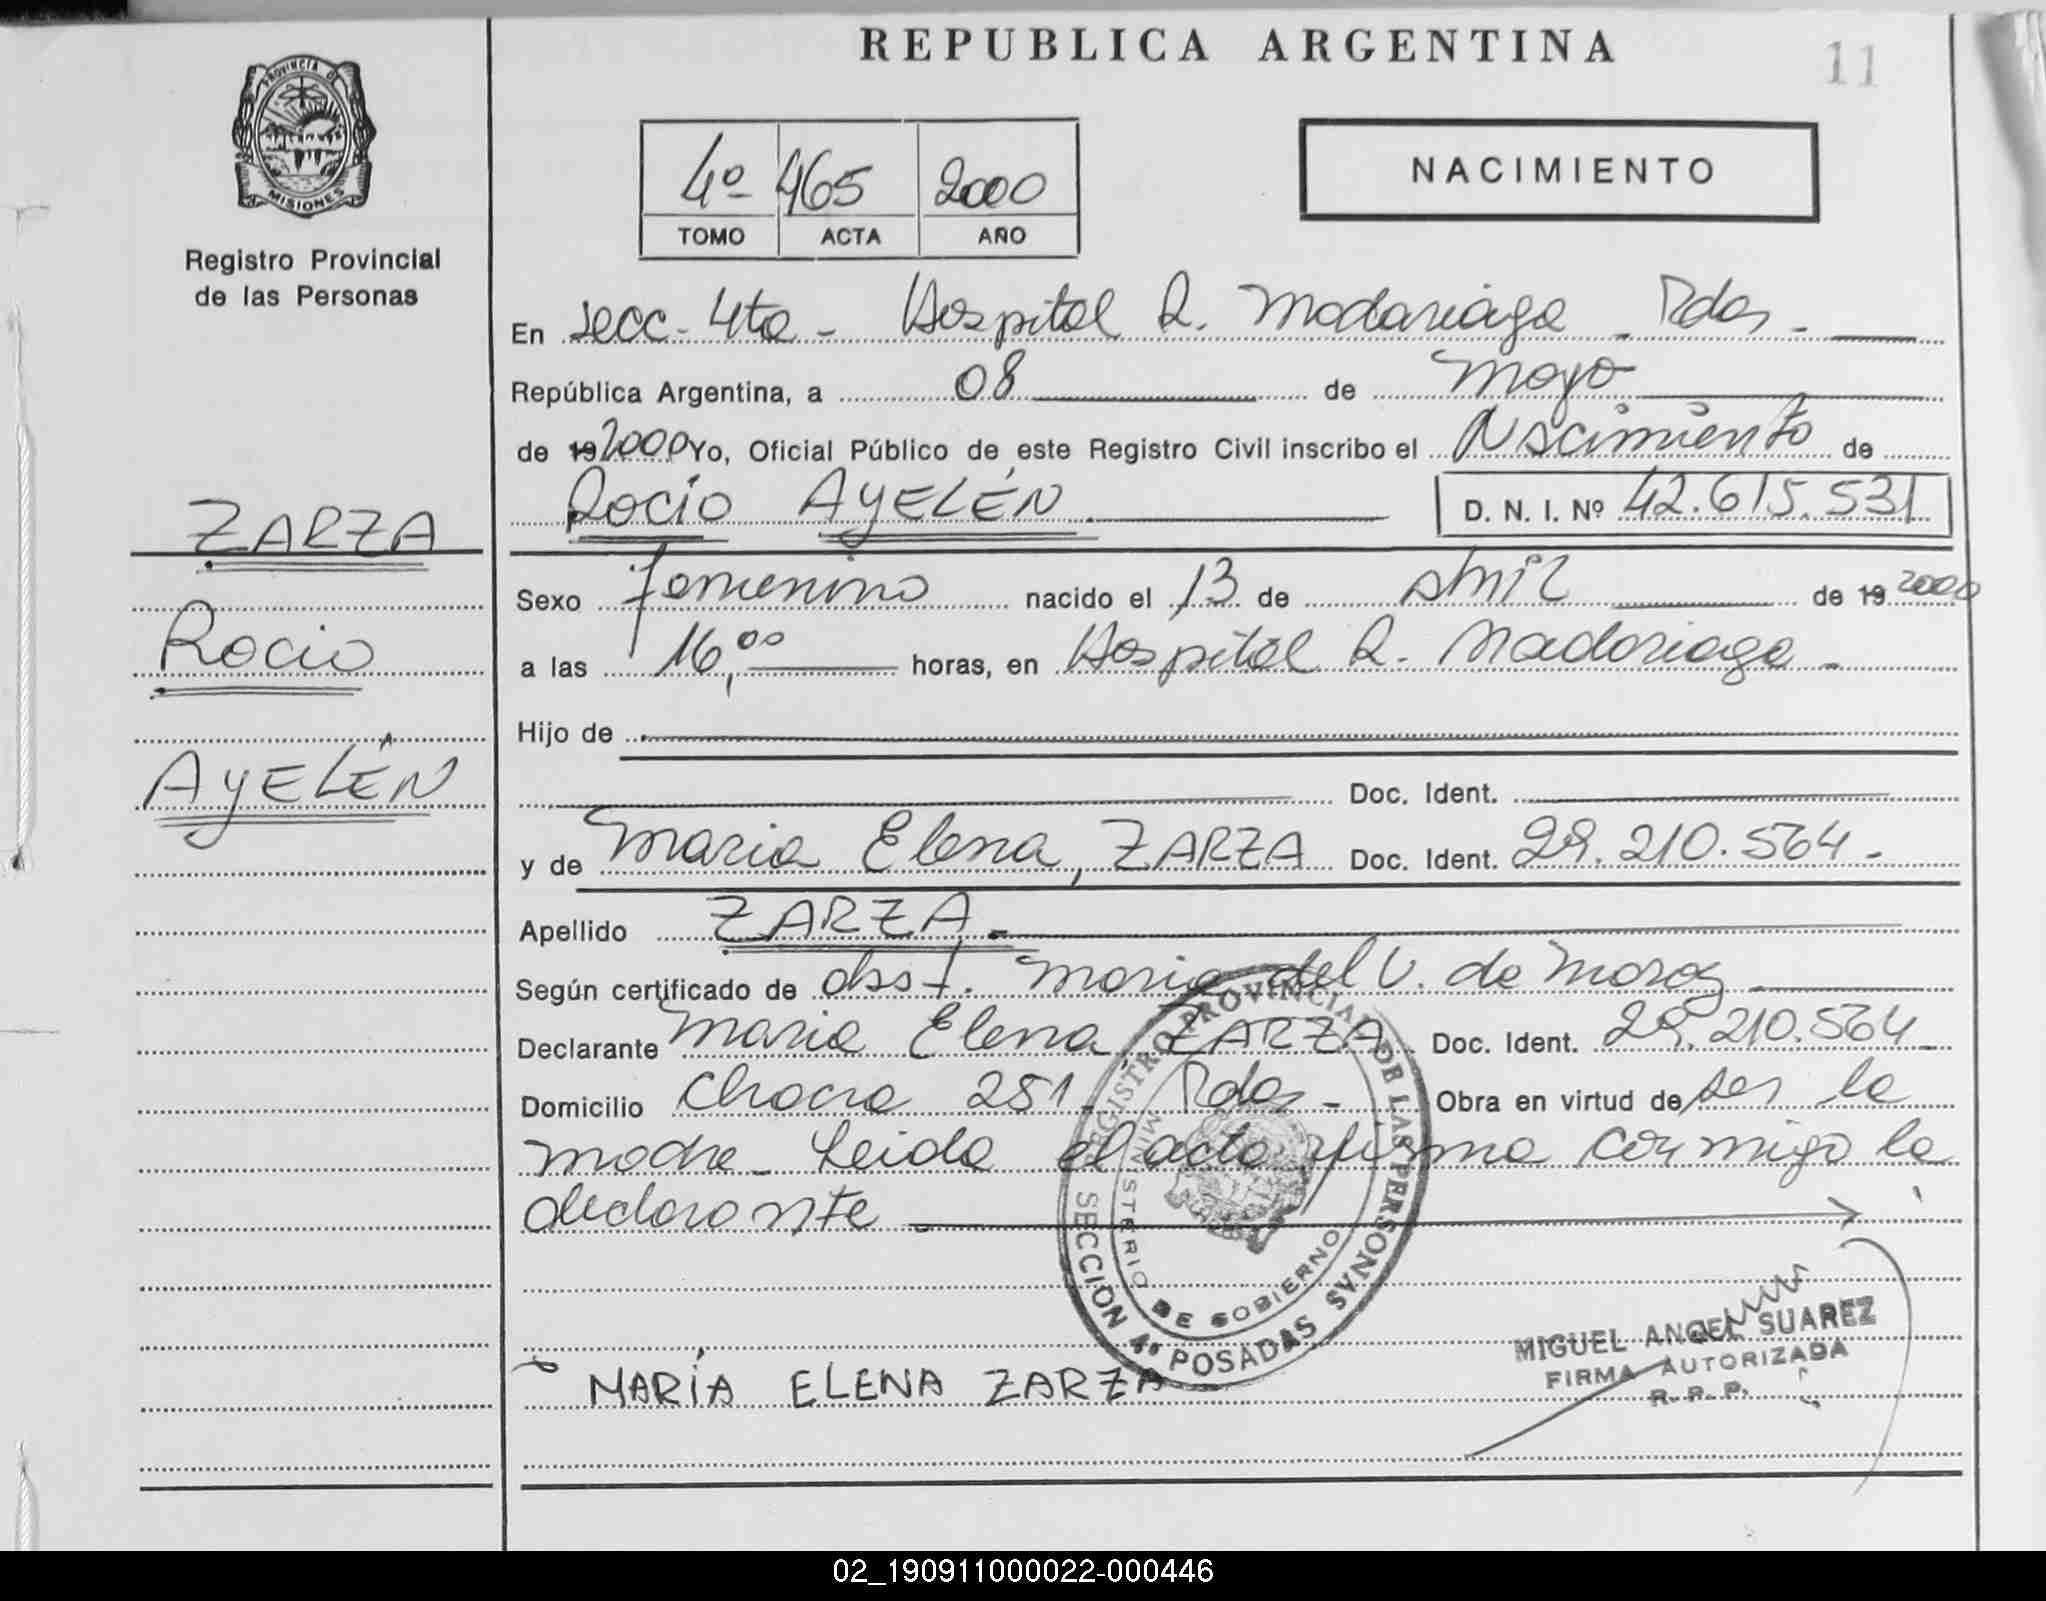 REPUBLICA ARGENTINA
11
PROVINCIA D
MISIONES
Registro Provincial
de las Personas
4º 465 2000
TOMO ACTA AÑO
NACIMIENTO
En secc. 4ta - Hospital R. Madariaga - Pdas. -
República Argentina, a 08 de mayo
de 19 2000 Yo, Oficial Público de este Registro Civil inscribo el Nacimiento de
Rocío AYELÉN. D. N. I. Nº 42.615.531
ZARZA
Rocio
AYELÉN
Sexo femenino nacido el 13 de abril de 19 2000
a las 16,00 horas, en Hospital R. Madariaga -
Hijo de
Doc. Ident.
y de Maria Elena, ZARZA Doc. Ident. 29.210.564 -
Apellido ZARZA.
Según certificado de obst. Maria del V. de
Declarante Maria Elena ZARZA Doc. Ident. 29.210.564 -
Domicilio Chacra 251 - Pdas - Obra en virtud de ser la
madre - Leida el acta firma conmigo la
declarante -
REGISTRO PROVINCIAL DE LAS PERSONAS
MINISTERIO DE GOBIERNO
SECCIÓN 4º POSADAS
MARÍA ELENA ZARZA
MIGUEL ANGEL SUAREZ
FIRMA AUTORIZADA
R. R. P.
02_190911000022-000446